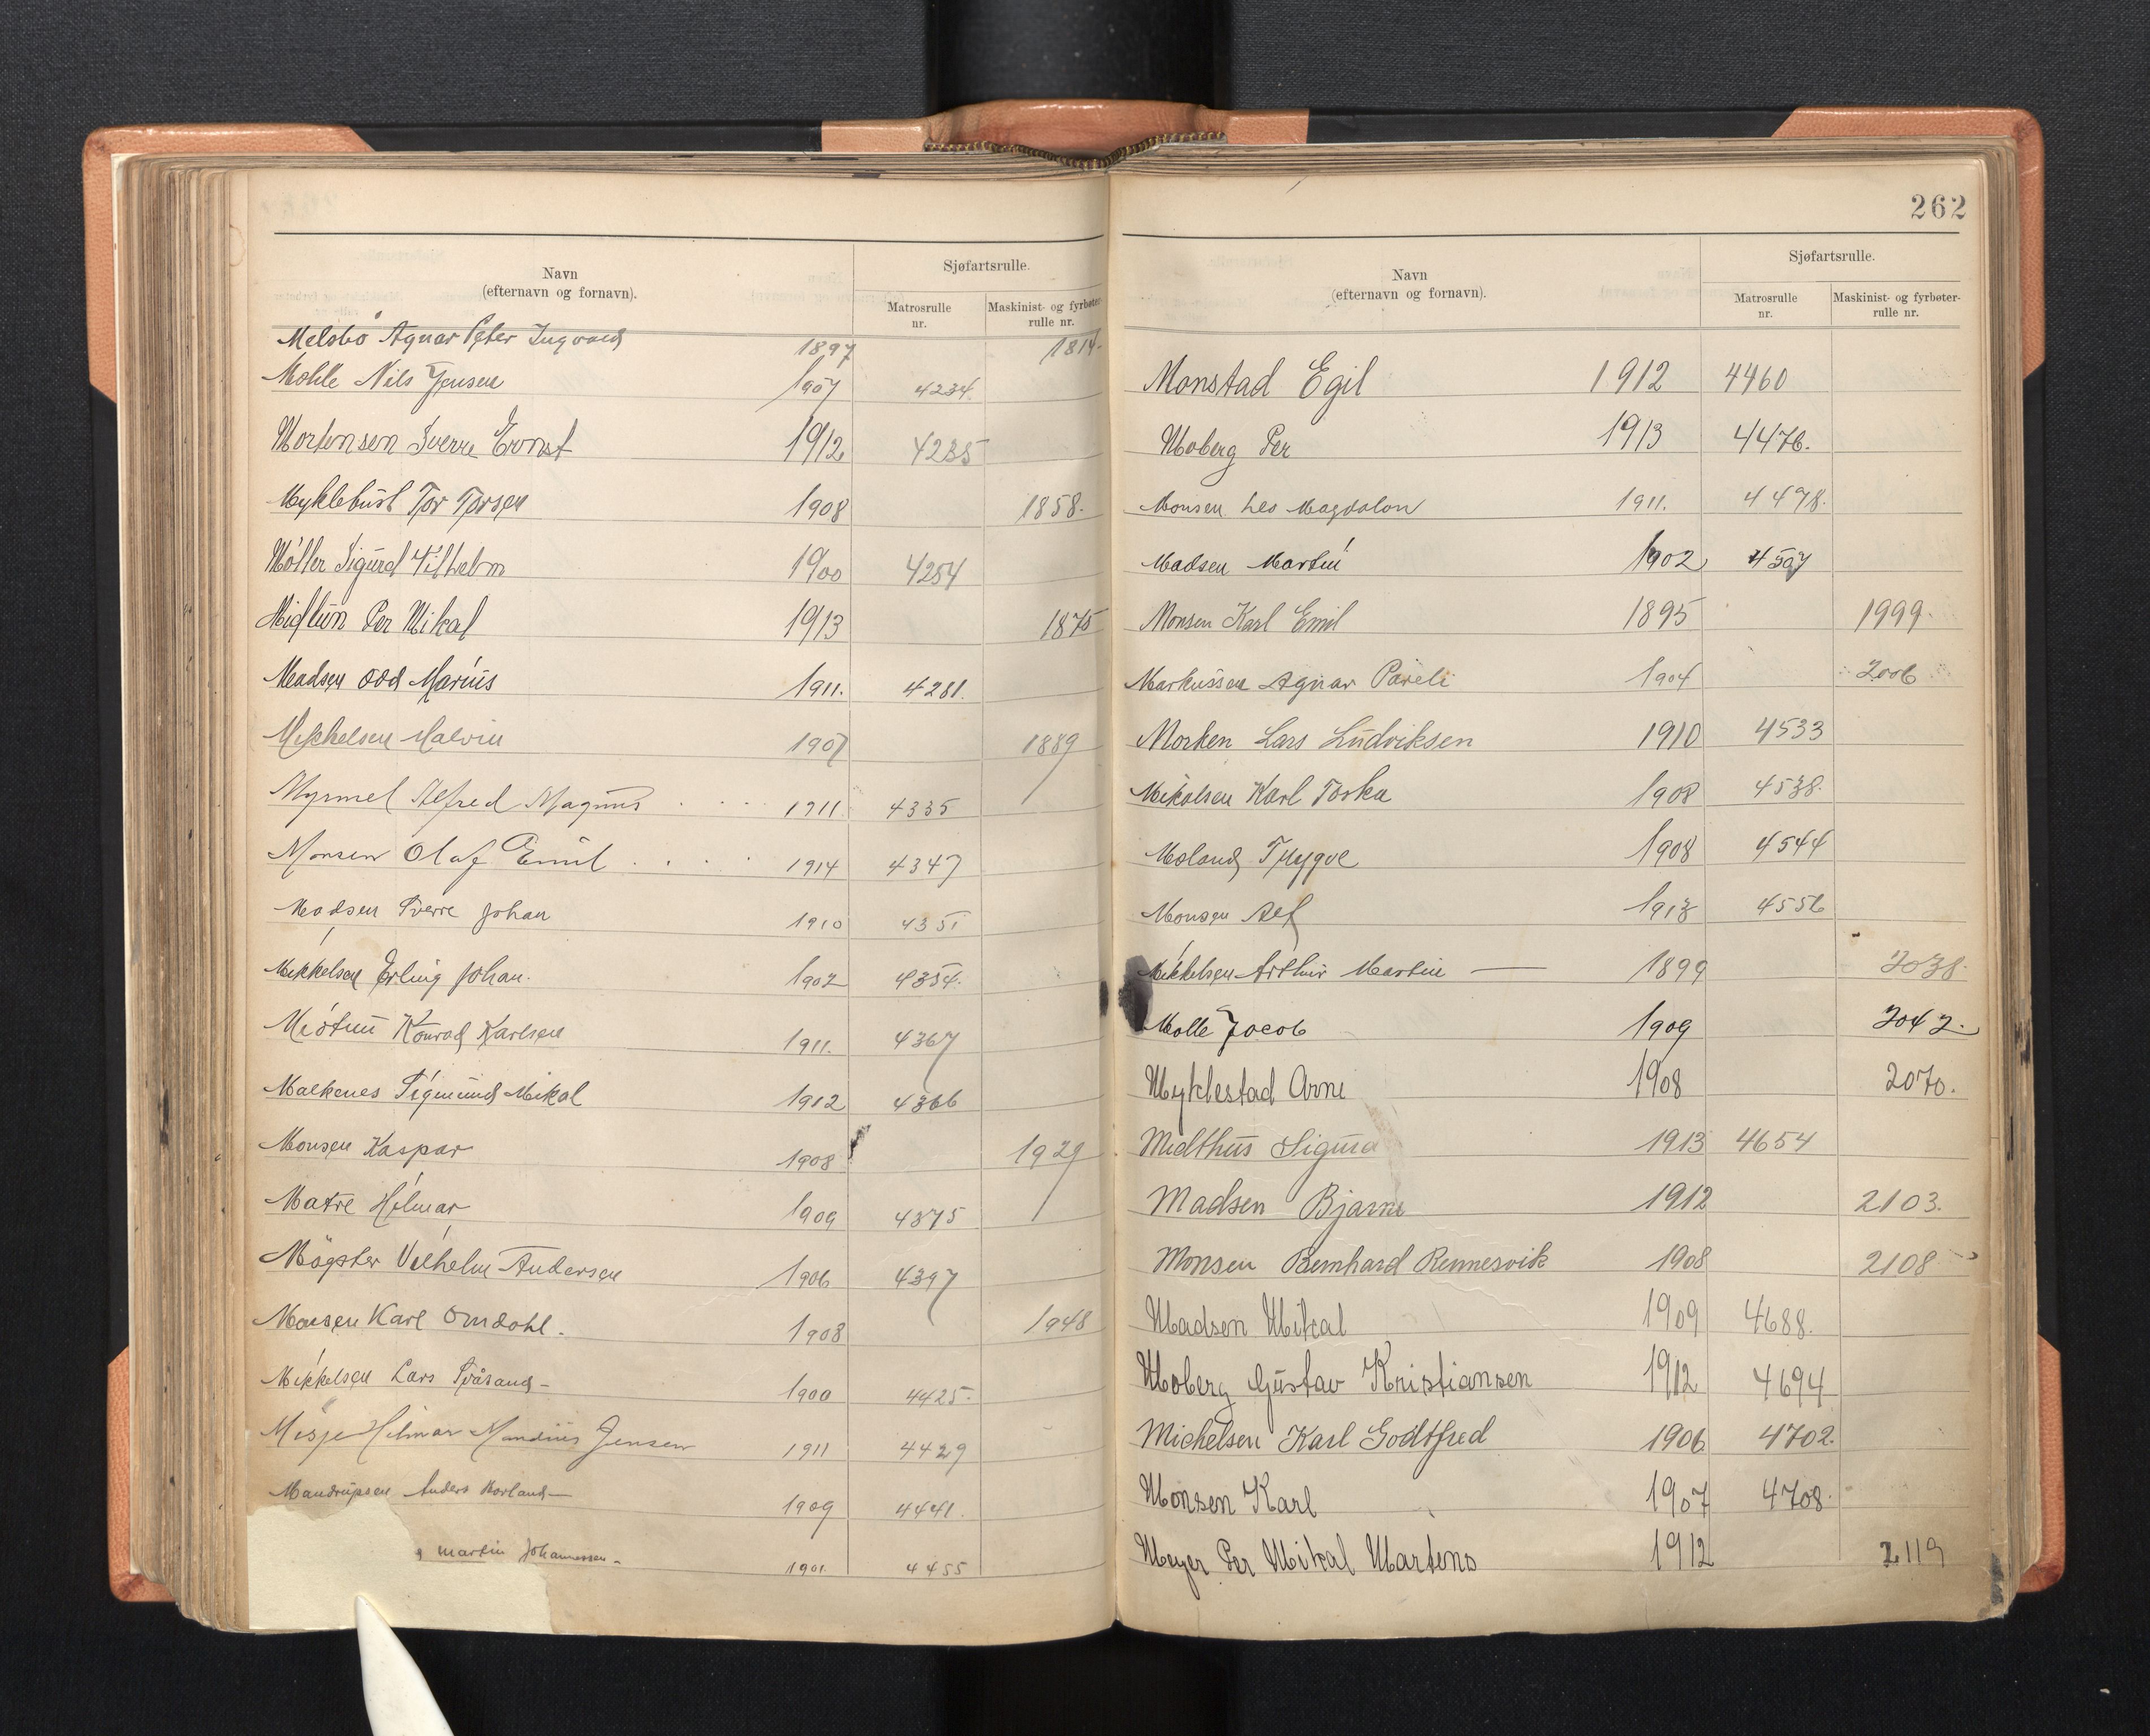 Navn
(efternavn og fornavn).
Sjøfartsrulle.
Matrosrulle
nr.
Maskinist- og fyrbøter-
rulle nr.
Melsbö Agnar Peter Ingvald 1897 1814.
Mohle Nils Jensen 1907 4234
Mortensen Sverre Ernst 1912 4235
Myklebust Tor Torsen 1908 1858.
Möller Sigurd Vilhelm 1900 4254
Midtun Per Mikal 1913 1875
Madsen Odd Marius 1911. 4281.
Mikkelsen Malvin 1907 1889
Myrmel Alfred Magnus 1911 4335
Monsen Olaf Emil 1914 4347
Madsen Sverre Johan 1910 4351
Mikkelsen Erling Johan. 1902 4354.
Konrad Karlsen 1911. 4367
Malkenes Sigmund Mikal 1912 4366
Monsen Kaspar 1908 1929
Matre Hilmar 1909 4375
Mögster Vilhelm Andersen 1906 4397
Monsen Karl Omdahl. 1908 1948
Mikkelsen Lars 1900 4425.
Misje Hilmar Mandius Jensen 1911 4429
Mandrupsen Anders 1909 4441.
Martin Johannessen 1901. 4455
262
Navn
(efternavn og fornavn).
Sjøfartsrulle.
Matrosrulle
nr.
Maskinist- og fyrbøter-
rulle nr.
Monstad Egil 1912 4460
Moberg Per 1913 4476.
Monsen Leo Magdalon 1911. 4478.
Madsen Martin 1902 4507
Monsen Karl Emil 1895 1999.
Markussen Agnar Pareli 1904 2006
Morken Lars Ludviksen 1910 4533
Mikalsen Karl Toska 1908 4538.
Moland Trygve 1908 4544
Monsen Alf 4556
Mikkelsen Arthur Martin — 1899 2038.
Molle Jacob 1909 2042.
Myklestad Arne 1908 2070.
Midthus Sigurd 1913 4654
Madsen Bjarne 1912 2103.
Monsen Bernhard Rennesvik 1908 2108
Madsen Mikal 1909 4688.
Moberg Gustav Kristiansen 1912 4694
Michelsen Karl Godtfred 1906 4702.
Monsen Karl 1907 4708.
Meyer Per Mikal Martens 1912 2119